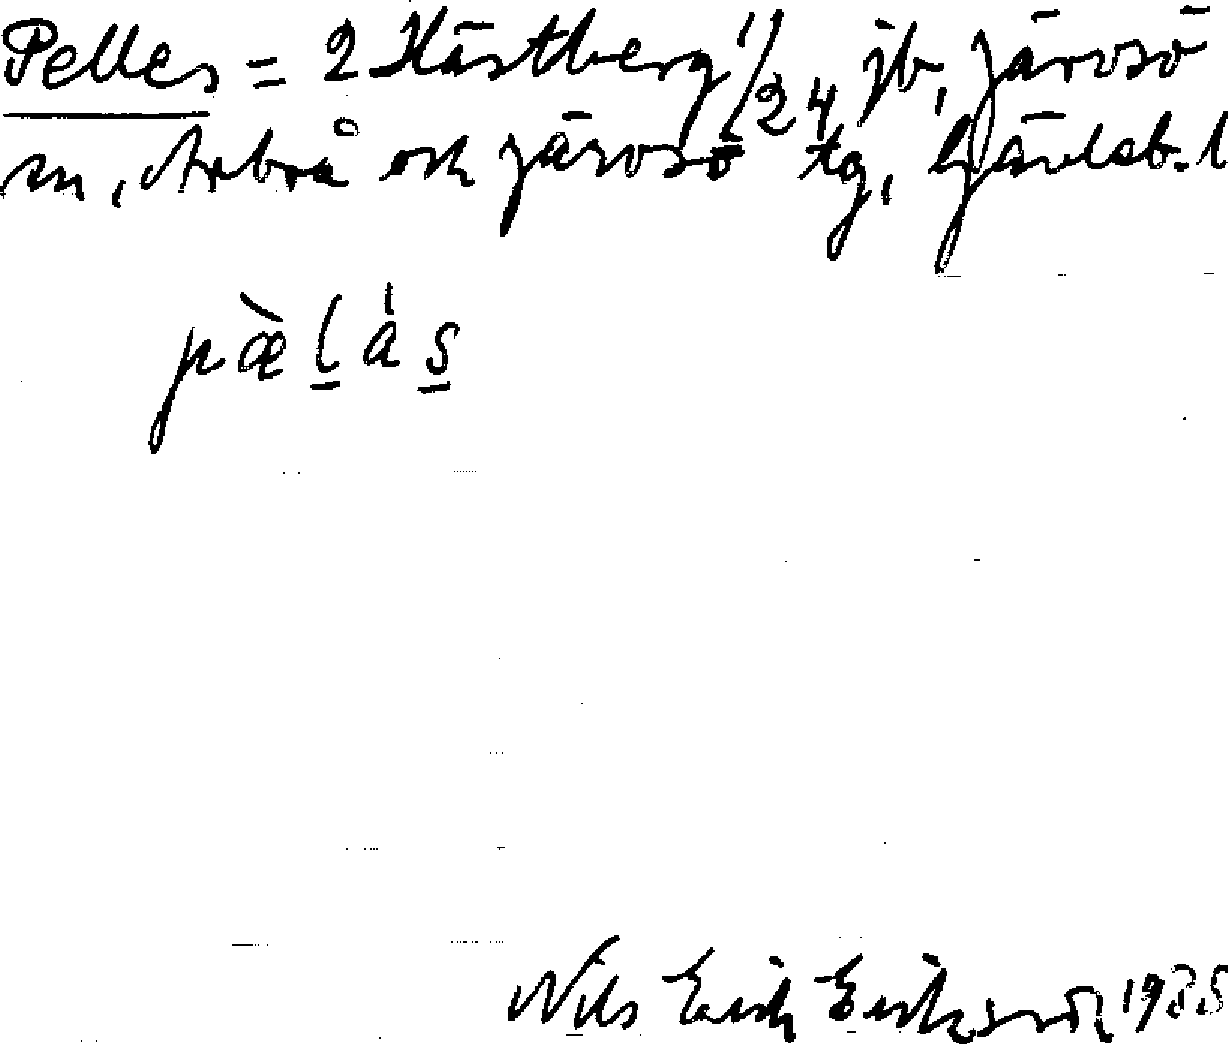 Pelles = 2 Hästberg 1/24 jb, Järvsö
sn, Arbrå och Järvsö tg, Gävleb. l
pæ̀l̠ȧs̠
Nils Erik Eriksson 1935